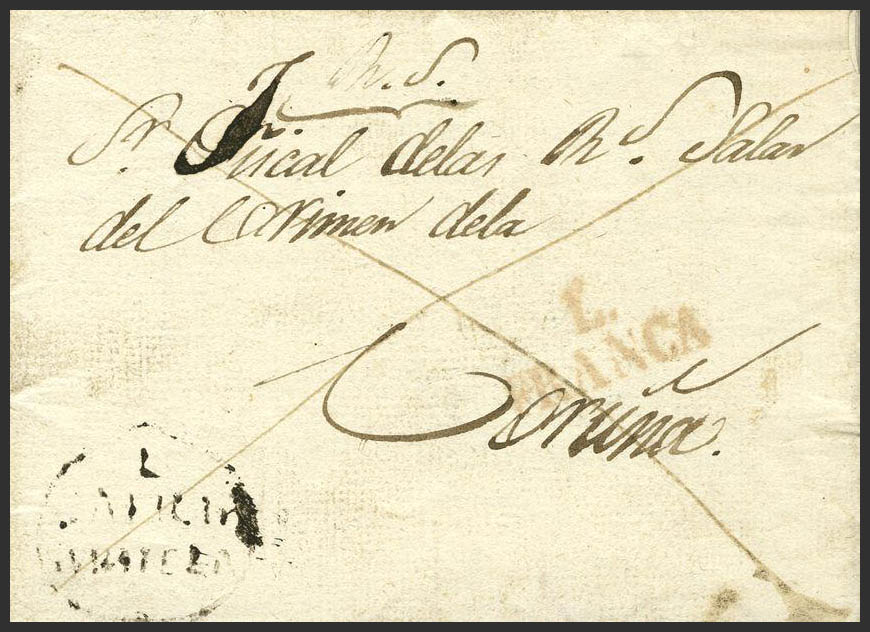 R. S.
Sr. Fiscal delas Rs. Salas
del Crimen dela
L.
FRANCA
Coruña.
L
GALICIA